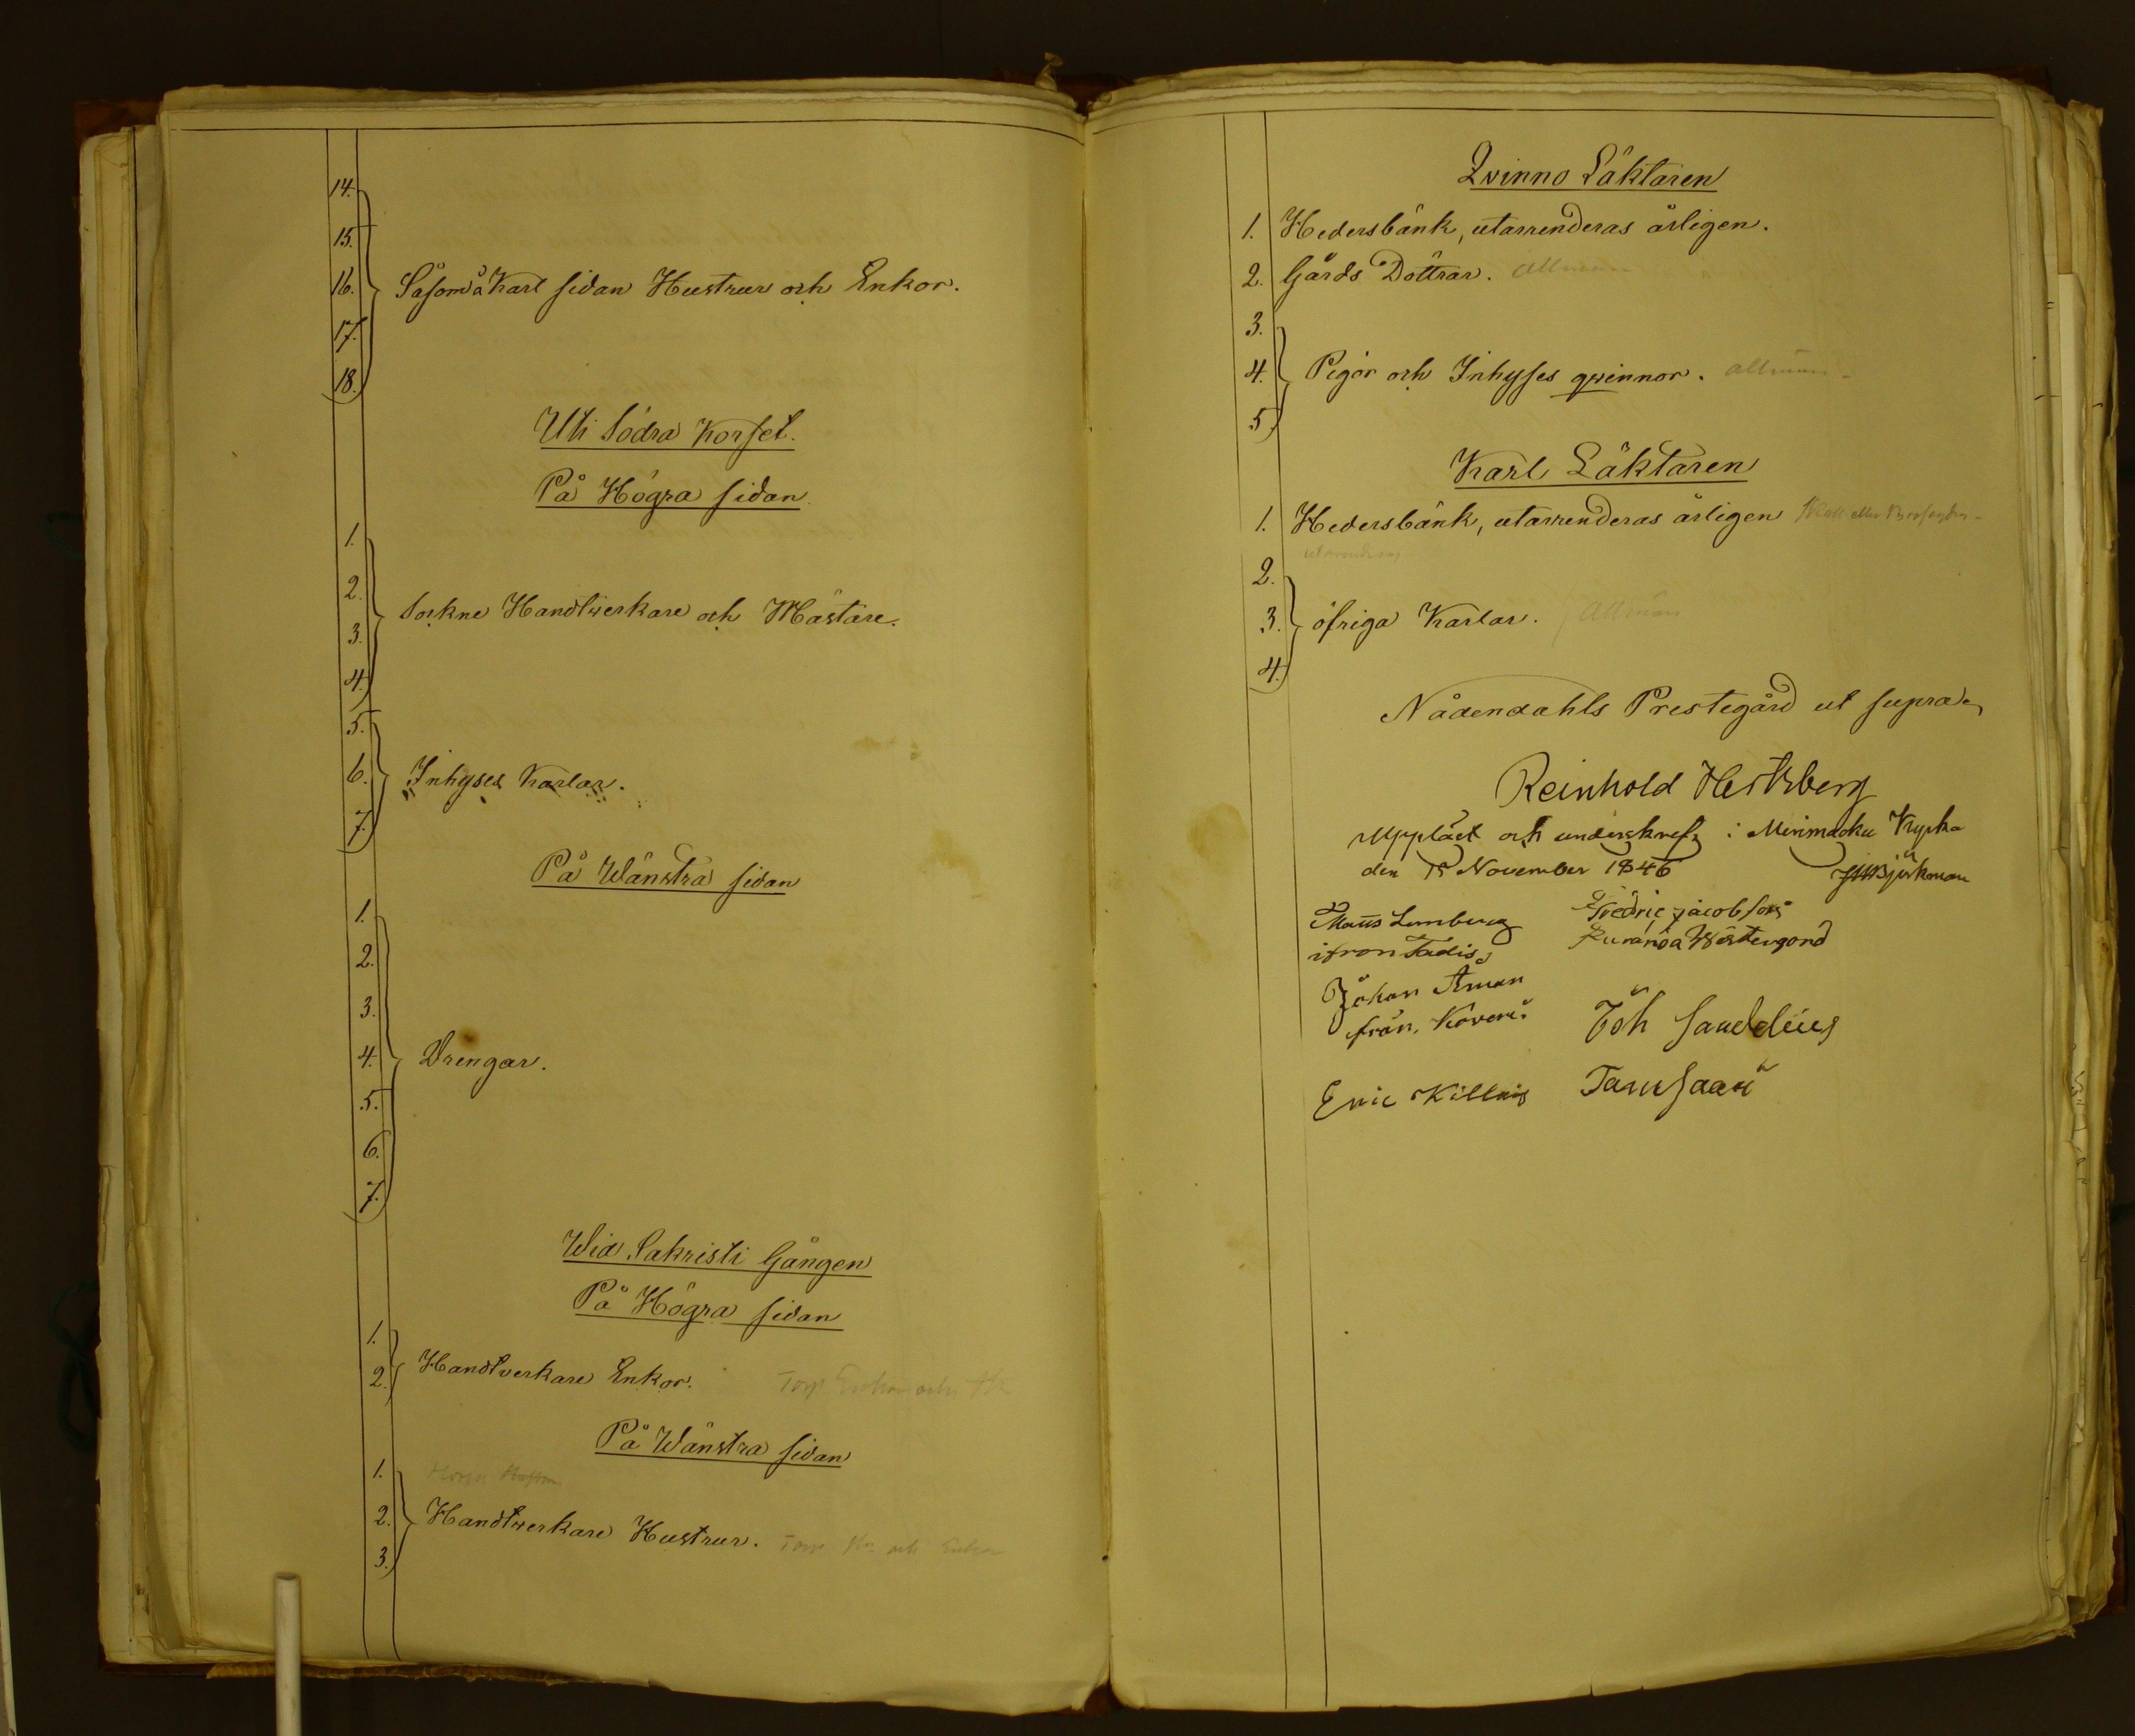 14.
15.
16. Såsom å Karl sidan Hustrur och Enkor.
17.
18.
Uti Södra Korset.
På Högra sidan
1.
2.
Sockne Handtwerkare och Mästare.
3.
4.
5.
6. Inhyses Karlar.
7.
På Wänstra sidan
1.
2.
3.
4. Drengar.
5.
6.
7.
Wid Sakristi Gången
På Högra sidan
1.
2. Handtverkare Enkor. Torp Enkor och
På Wänstra sidan
1.
2. Handtwerkare Hustrur. Torp och Enkor
3.
Qvinno Läktaren
1. Hedersbänk, utarrenderas årligen.
2. Gårds Döttrar. Allmän
3.
4. Pigor och Inhyses qvinnor. allmän
5.
Karl Läktaren
1. Hedersbänk, utarrenderas årligen
utarrenderas
2.
3. öfriga Karlar. Allmän
4.
Nådendahls Prestegård ut supra
Reinhold Hertzberg
Uppläst och underskref i Merimasku Kyrka
den 15 November 1846 Björkman
Matts Lemberg Fredric jacobsson
ifron Tadis Ruranda Westergord
Johan Aman
från Köveri Joh Sandelius
Eric Killnis Tamsaari